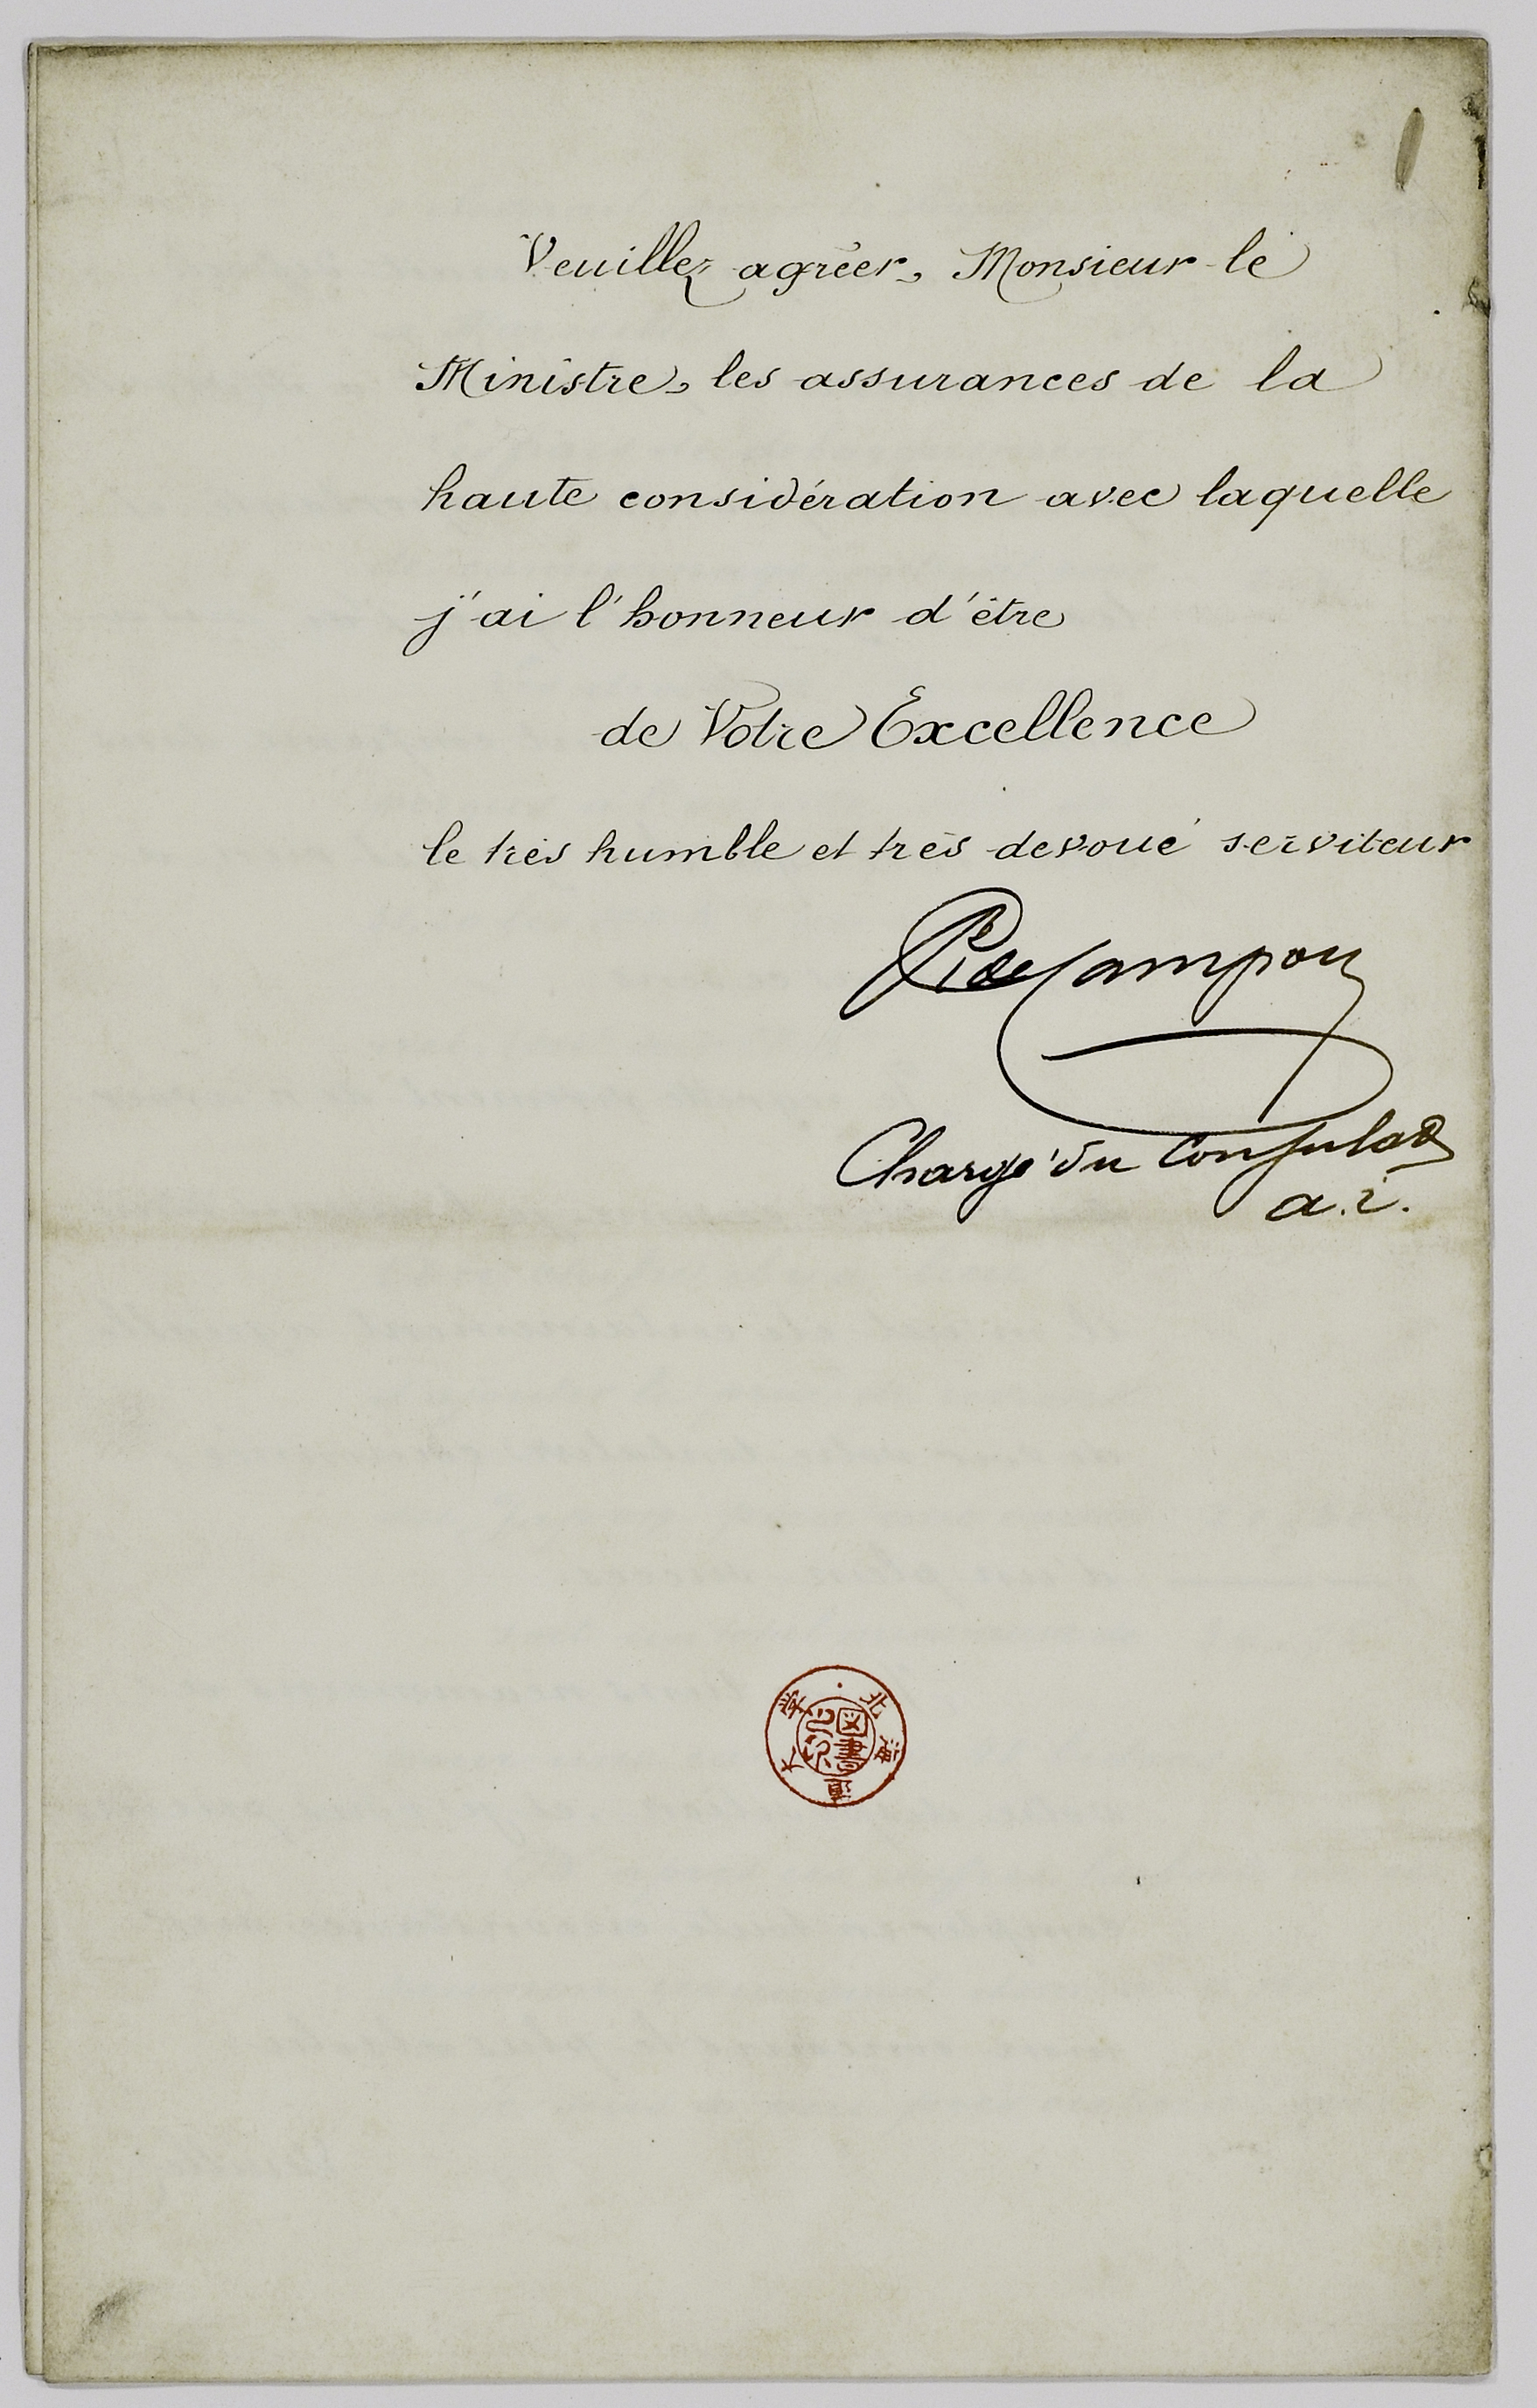 Veuillez agréer, Monsieur le
Ministre, les assurances de la
haute considération avec laquelle
j'ai l'honneur d'être
de Votre Excellence
le très humble et très dévoué serviteur
P. de Campou
Chargé du Consulat
a.i.
北海道大学
図書之印